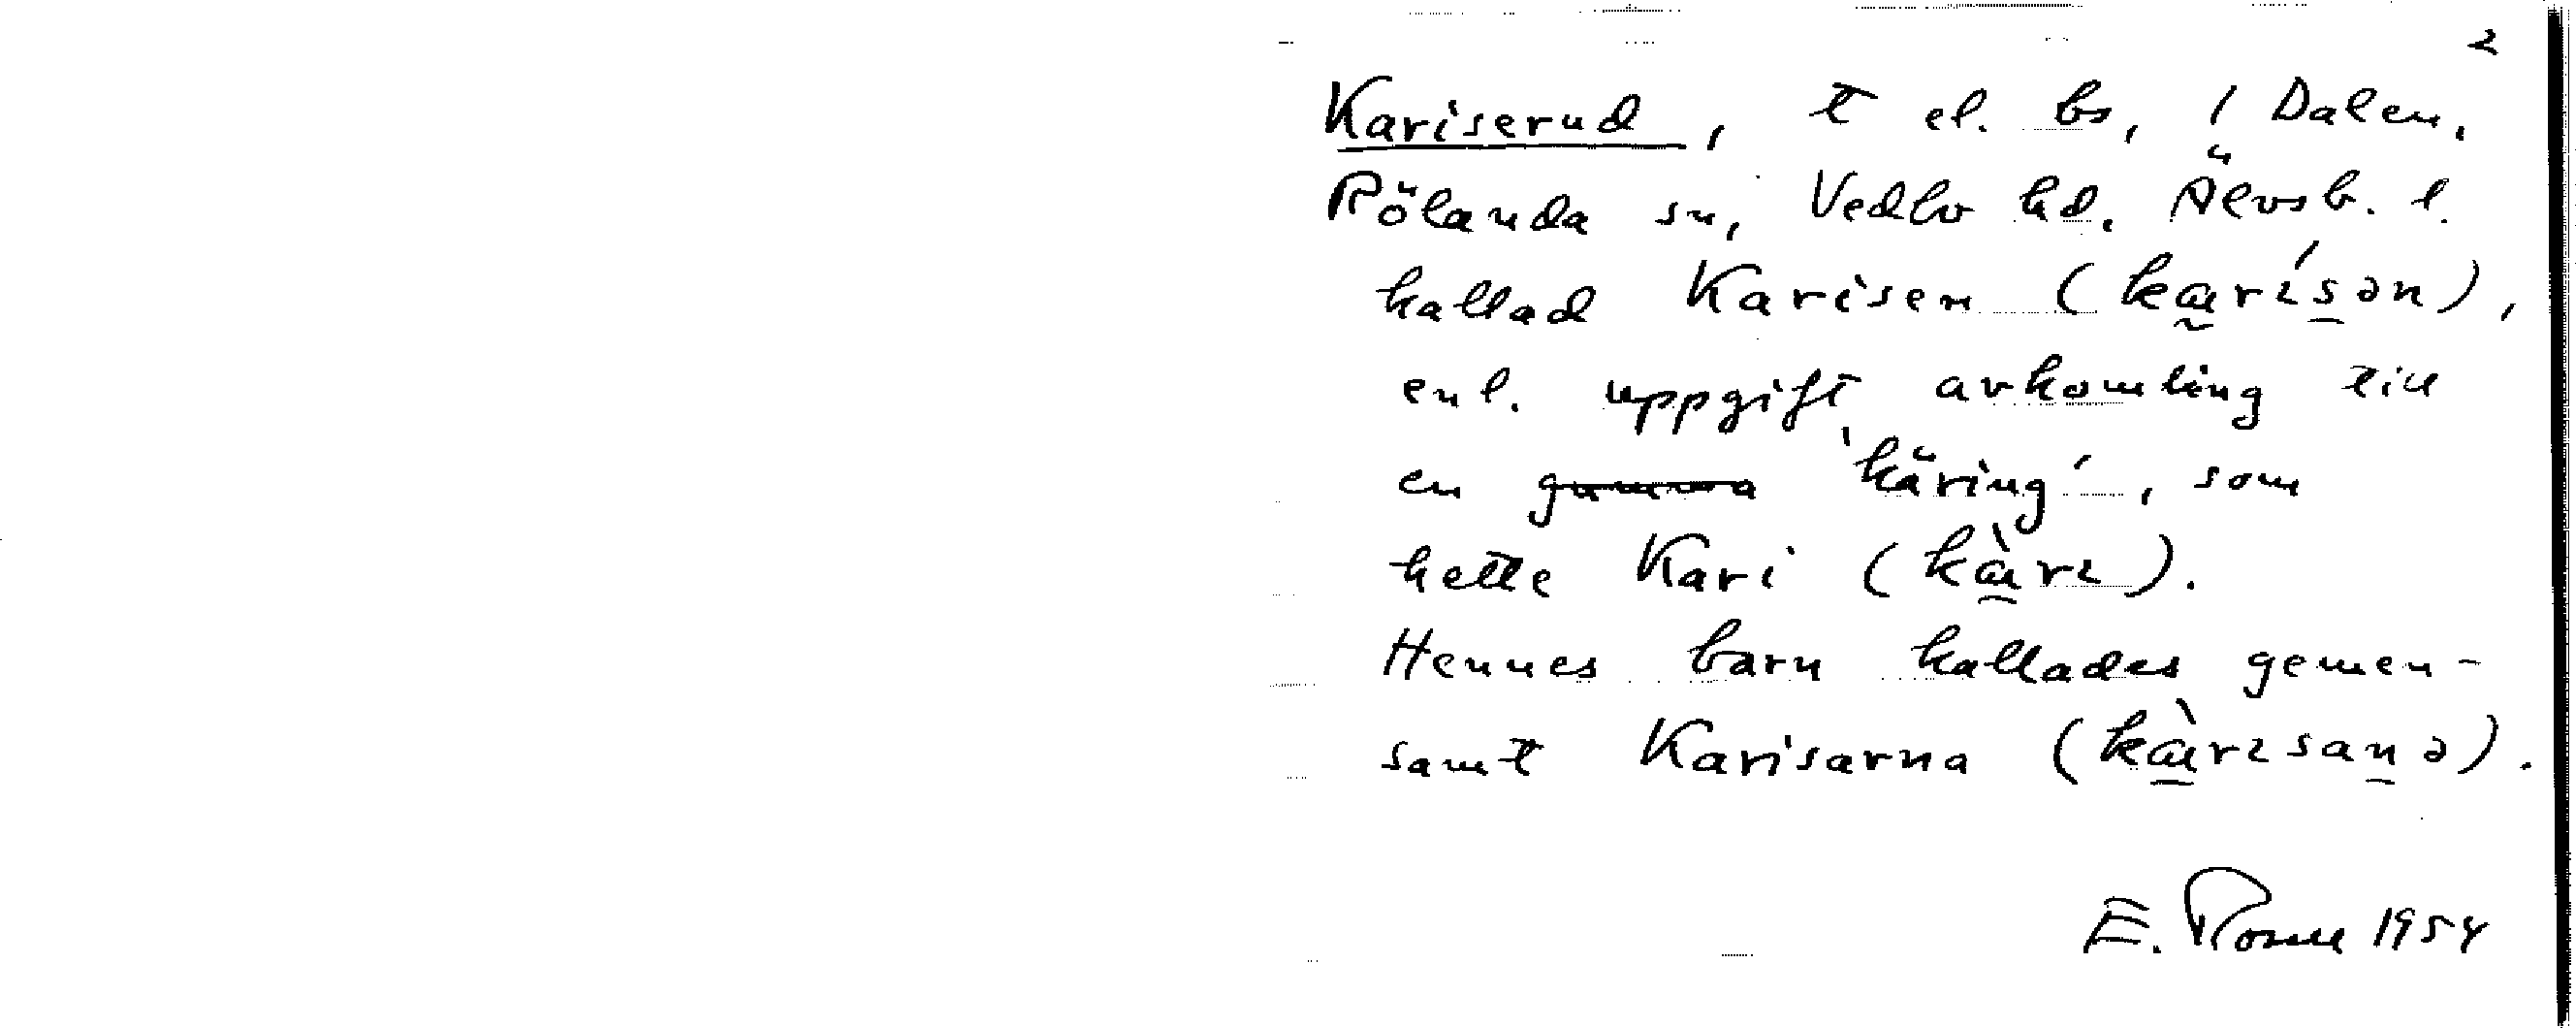 2
Kariserud, t el. bs, i Dalen,
Rölanda sn, Vedbo hd, Älvsb. l.
kallad Karisen (karísən),
enl. uppgift avkomling till
en gumma 'käring', som
hette Kari (kàrɩ).
Hennes barn kallades gemen-
samt Karisarna (kàrɩsanə).
E. 1954